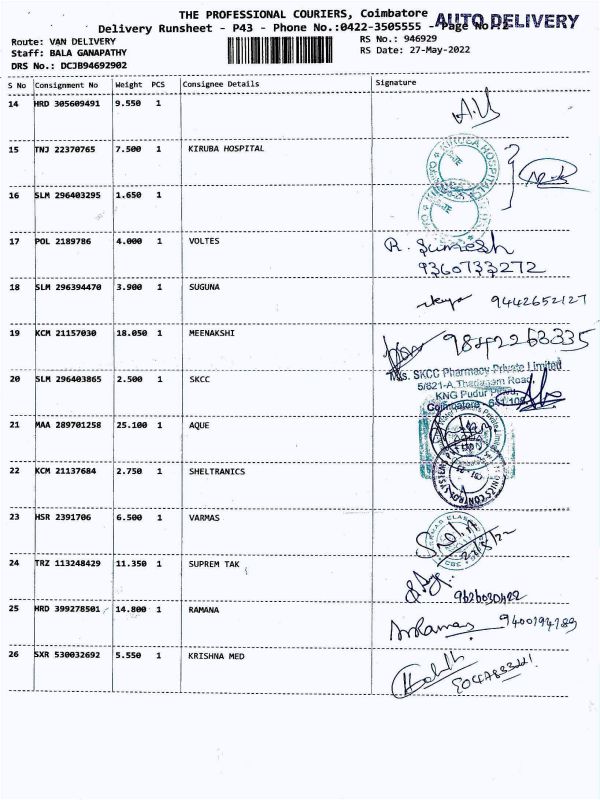 THE PROFESSIONAL COURIERS, Coimbatore
AUTO DELIVERY
Delivery Runsheet - P43 - Phone No.:0422-3505555 - Page No : 2
Route: VAN DELIVERY
RS No.: 946929
Staff: BALA GANAPATHY
RS Date: 27-May-2022
DRS No.: DCJB94692902
S No Consignment No Weight PCS Consignee Details Signature
14 HRD 305609491 9.550 1
15 TNJ 22370765 7.500 1 KIRUBA HOSPITAL
KIRUBA HOSPITAL
16 SLM 296403295 1.650 1
17 POL 2189786 4.000 1 VOLTES
R. Sumesh
9360733272
18 SLM 296394470 3.900 1 SUGUNA
9442652127
19 KCM 21157030 18.050 1 MEENAKSHI
9842268335
20 SLM 296403865 2.500 1 SKCC
M/s. SKCC Pharmacy Private Limited
5/621-A, Thadagam Road,
KNG Pudur Pirivu,
Coimbatore - 641 108
21 MAA 289701258 25.100 1 AQUE
22 KCM 21137684 2.750 1 SHELTRANICS
23 HSR 2391706 6.500 1 VARMAS
24 TRZ 113248429 11.350 1 SUPREM TAK
9626030422
25 HRD 399278501 14.800 1 RAMANA
26 SXR 530032692 5.550 1 KRISHNA MED